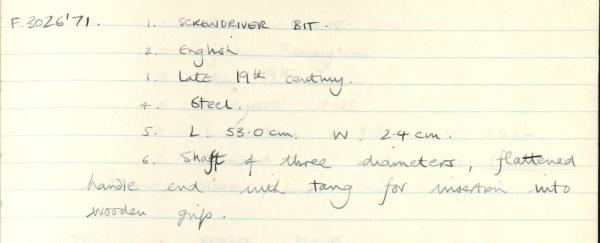 F.3026'71. 1. SCREWDRIVER BIT.
2. English
3. Late 19th century.
4. Steel.
5. L. 53.0cm. W. 2.4cm.
6. Shaft of three diameters, flattened
handle end with tang for insertion into
wooden grip.